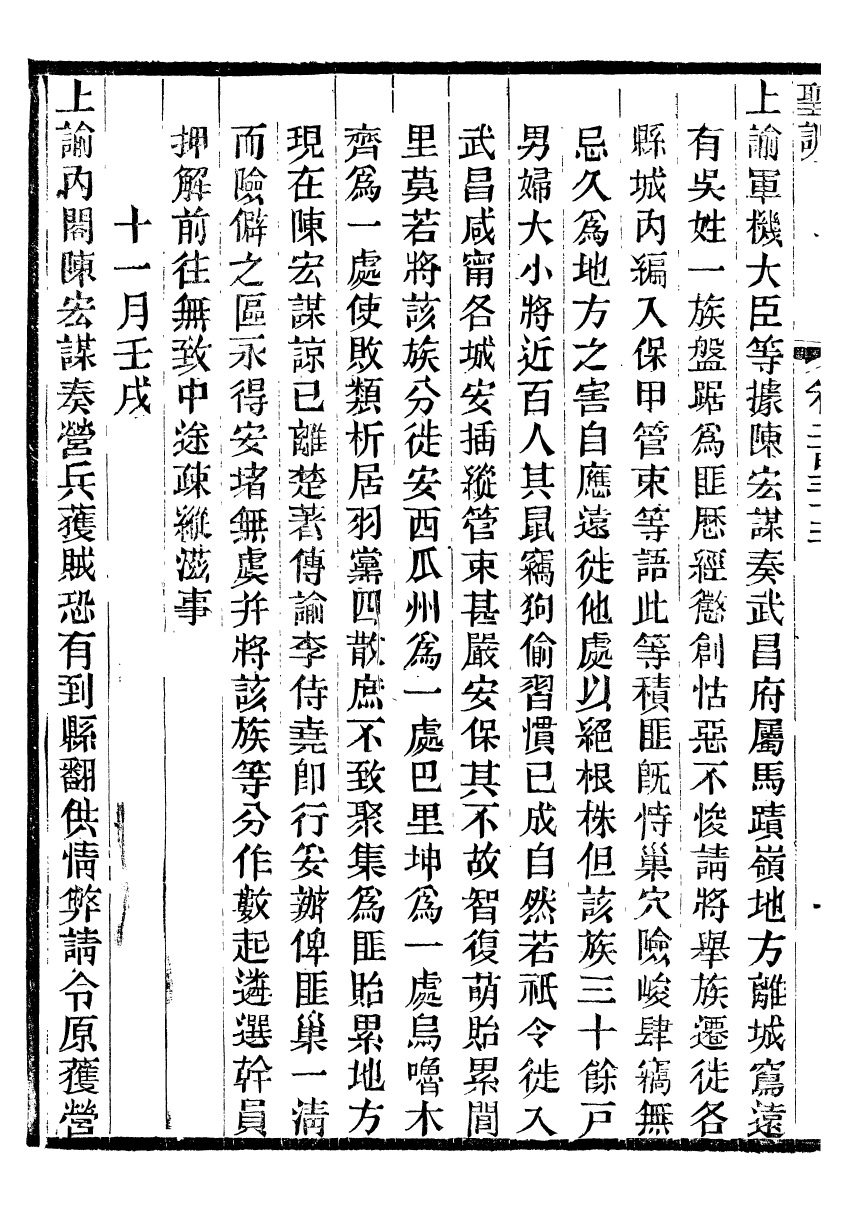 聖訓 卷二百三十三
上諭軍機大臣等據陳宏謀奏武昌府屬馬蹟嶺地方離城窵遠
有吳姓一族盤踞爲匪歷經懲創怙惡不悛請將舉族遷徙各
縣城內編入保甲管束等語此等積匪旣恃巢穴險峻肆竊無
忌久爲地方之害自應遠徙他處以絕根株但該族三十餘戸
男婦大小將近百人其鼠竊狗偷習慣已成自然若祇令徙入
武昌咸甯各城安插縱管束甚嚴安保其不故智復萌貽累閭
里莫若將該族分徙安西瓜州爲一處巴里坤爲一處烏嚕木
齊爲一處使敗類析居羽黨四散庶不致聚集爲匪貽累地方
現在陳宏謀諒已離楚著傳諭李侍堯卽行妥辦俾匪巢一淸
而險僻之區永得安堵無虞并將該族等分作數起遴選幹員
押解前往無致中途疎縱滋事
十一月壬戌
上諭內閣陳宏謀奏營兵獲賊恐有到縣翻供情弊請令原獲營